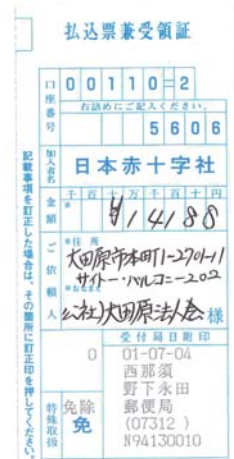 払込票兼受領証
口座番号
00110-2
右詰めにご記入ください。
5606
加入者名
日本赤十字社
金額
千百十万千百十円
※
¥14188
ご依頼人
※住所
大田原市本町1-2701-11
サイトー・バルコニー202
※おなまえ
(公社)大田原法人会 様
受付局日附印
0
01-07-04
西那須
野下永田
郵便局
(07312)
N94130010
特殊取扱
免除
免
記載事項を訂正した場合は、その箇所に訂正印を押してください。